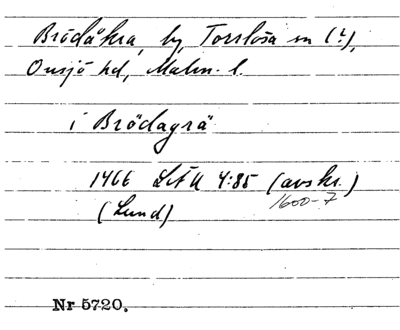 Brödåkra, by, Torrlösa sn (?),
Onsjö hd, Malm. l.
i Brödagrä
1466 LÄU 4:85 (avskr.)
1600-7
(Lund)
Nr 5720.